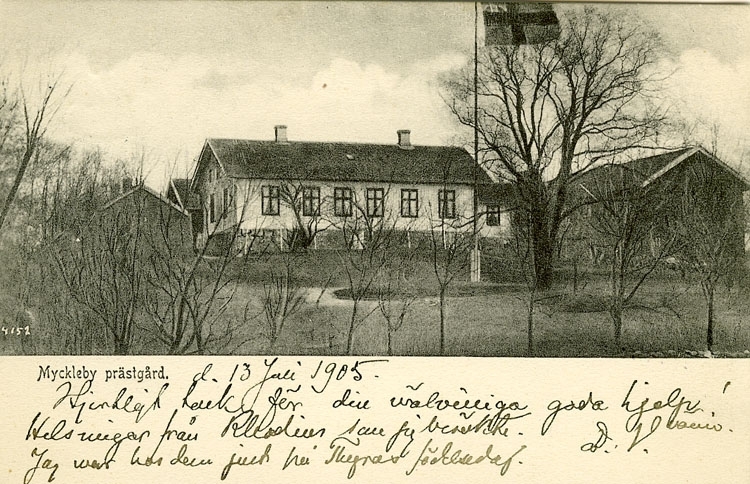 4152
Myckleby prästgård. d. 13 Juli 1905.
Hjertligt tack för din wälvilliga goda hjelp!
Helsningar från Rhodins som jag besökte.
Jag war hos dem just på Thyras födelsedag.